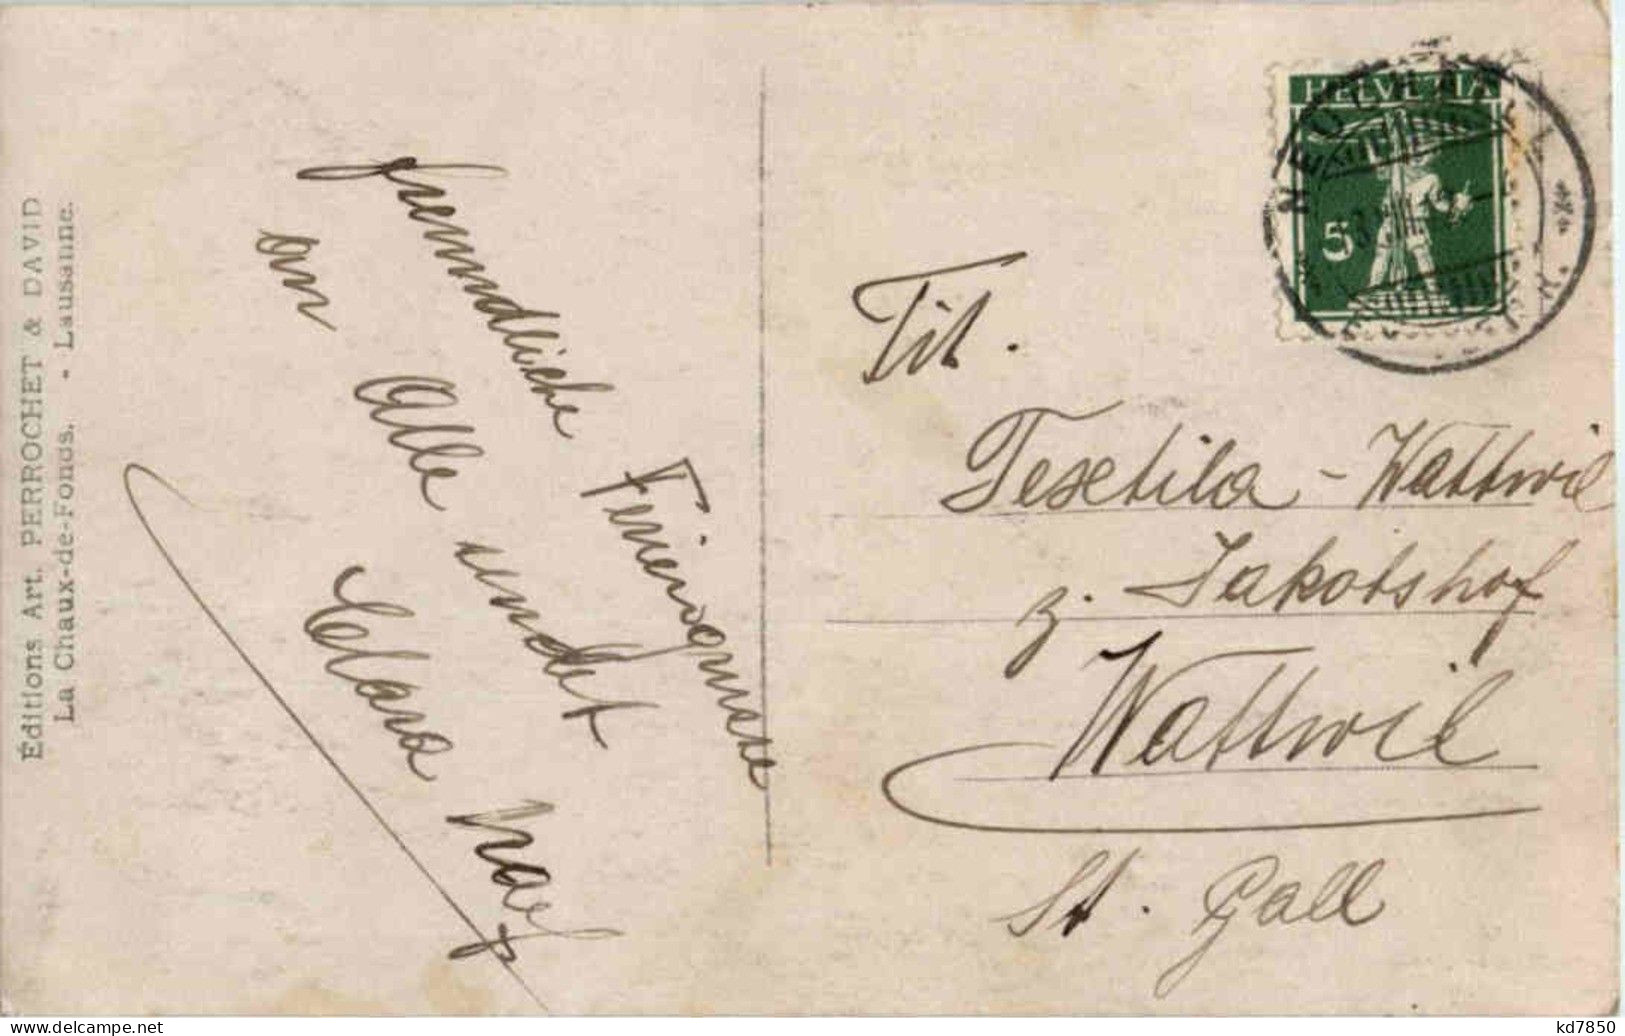 Éditions Art. PERROCHET & DAVID
La Chaux-de-Fonds. - Lausanne.
freundliche Feriengrüsse
an Alle sendet
Clara Naef
HELVETIA
5
NEUCHATEL
Tit.
Textila - Wattwil
z. Jakobshof
Wattwil
St. Gall
delcampe.net
kd7850